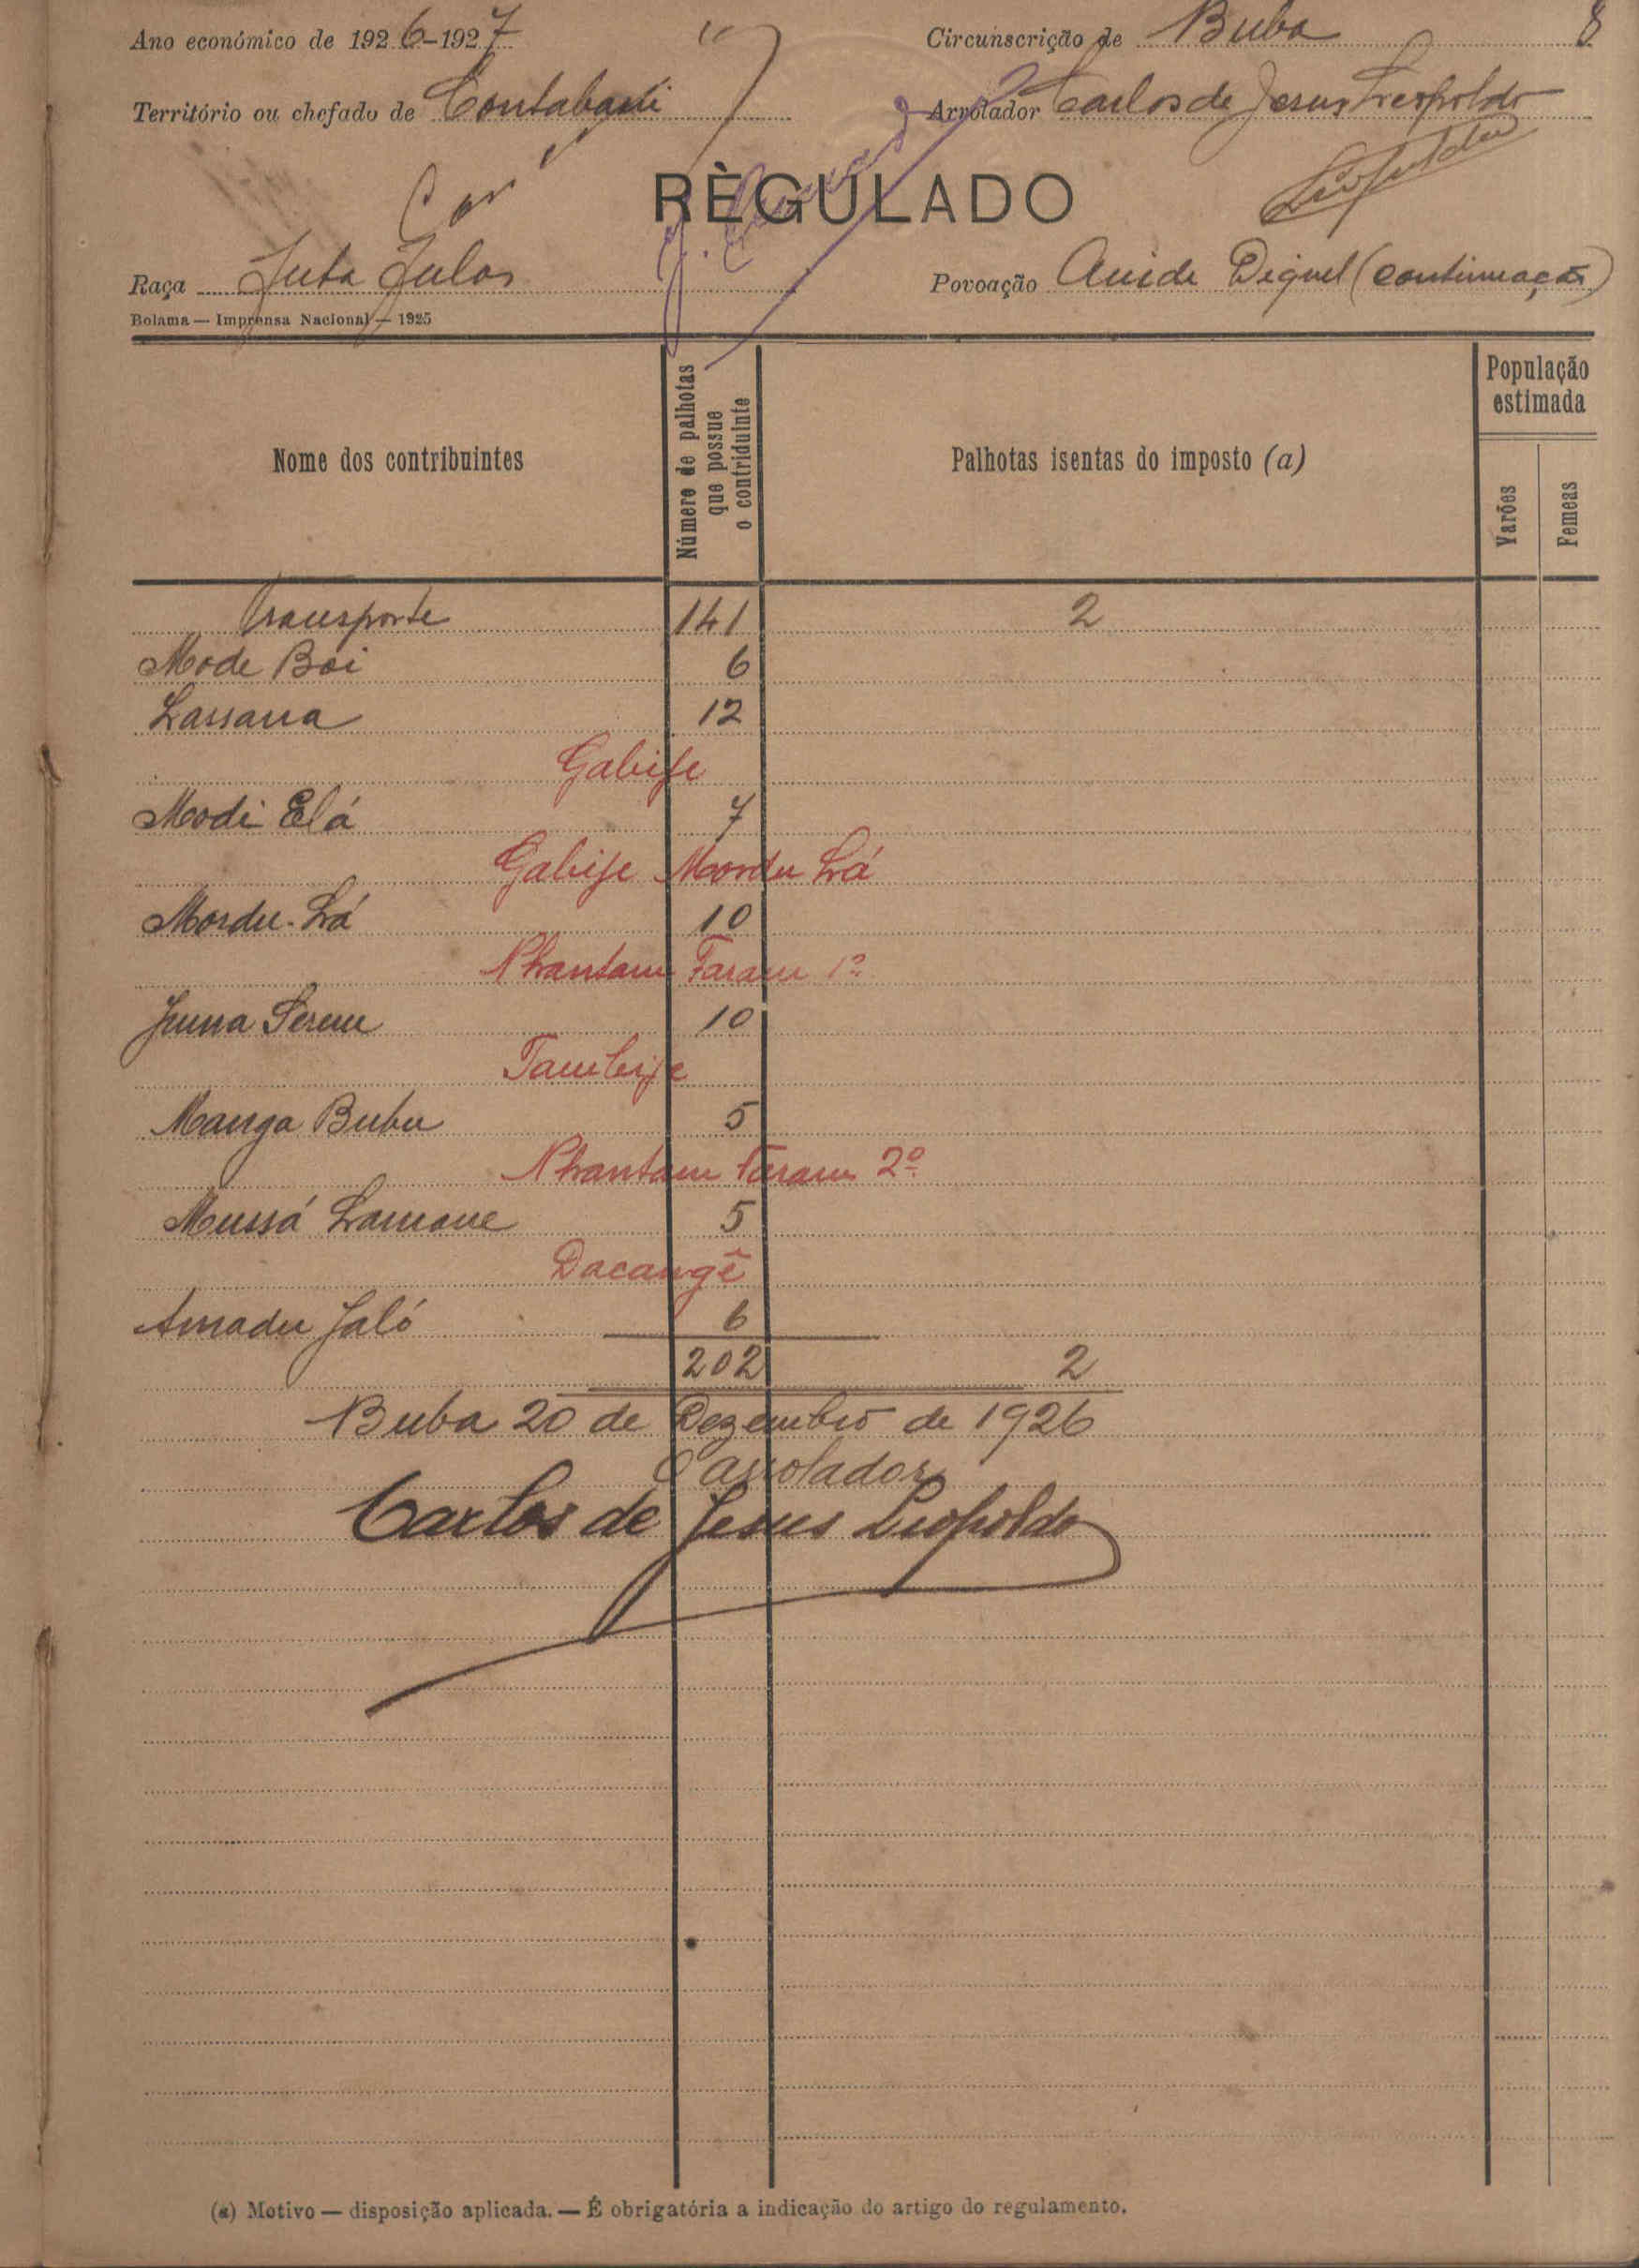 Ano económico de 1926-1927 Circunscrição de Buba 8
Território ou chefado de Contabani Arrolador Carlos de Jesus Leopoldo
RÈGULADO
Raça Futa Fulas Povoação Anide Dequel (continuação)
Bolama — Imprensa Nacional — 1925
Nome dos contribuintes
Número de palhotas
que possue
o contriduinte
Palhotas isentas do imposto (a)
População
estimada
Varões
Femeas
Transporte 141 2
Mode Boi 6
Lassana 12
Gabife
Modi Elá 7
Gabife Mordu Lá
Mordu-Lá 10
Nhantam Faram 1º
Juma Serem 10
Tambife
Manga Bubu 5
Nhantam Faram 2º
Mussá Lamane 5
Dacangê
Amadu Jaló 6
202 2
Buba 20 de Dezembro de 1926
O arrolador
Carlos de Jesus Leopoldo
(a) Motivo — disposição aplicada. — É obrigatória a indicação do artigo do regulamento.